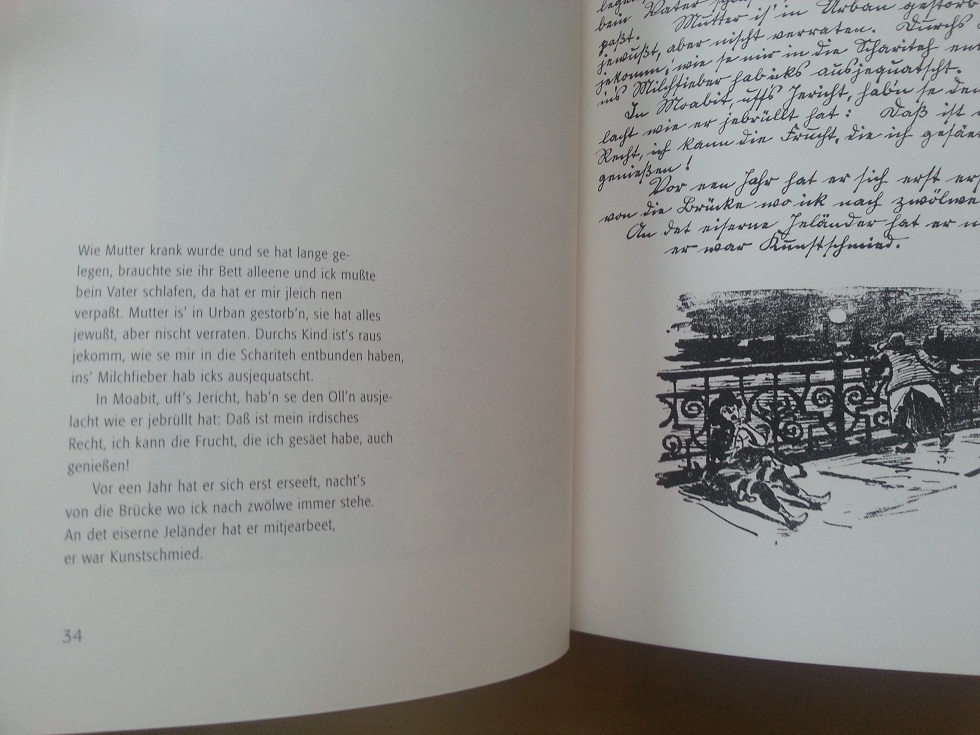 Wie Mutter krank wurde und se hat lange ge-
legen, brauchte sie ihr Bett alleene und ick mußte
bein Vater schlafen, da hat er mir jleich nen
verpaßt. Mutter is' in Urban gestorb'n, sie hat alles
jewußt, aber nischt verraten. Durchs Kind ist's raus
jekomm, wie se mir in die Schariteh entbunden haben,
ins' Milchfieber hab icks ausjequatscht.
In Moabit, uff's Jericht, hab'n se den Oll'n ausje-
lacht wie er jebrüllt hat: Daß ist mein irdisches
Recht, ich kann die Frucht, die ich gesäet habe, auch
genießen!
Vor een Jahr hat er sich erst erseeft, nacht's
von die Brücke wo ick nach zwölwe immer stehe.
An det eiserne Jeländer hat er mitjearbeet,
er war Kunstschmied.
34
bein Vater
paßt. Mutter is' in Urban gestorb
jewußt, aber nischt verraten. Durchs
jekomm, wie se mir in die Schariteh ent
ins Milchfieber hab icks ausjequatscht.
In Moabit, uff's Jericht, hab'n se den
lacht wie er jebrüllt hat: Daß ist
Recht, ich kann die Frucht, die ich gesäe
genießen!
Vor een Jahr hat er sich erst er
von die Brücke wo ick nach zwölwe
An det eiserne Jeländer hat er
er war Kunstschmied.